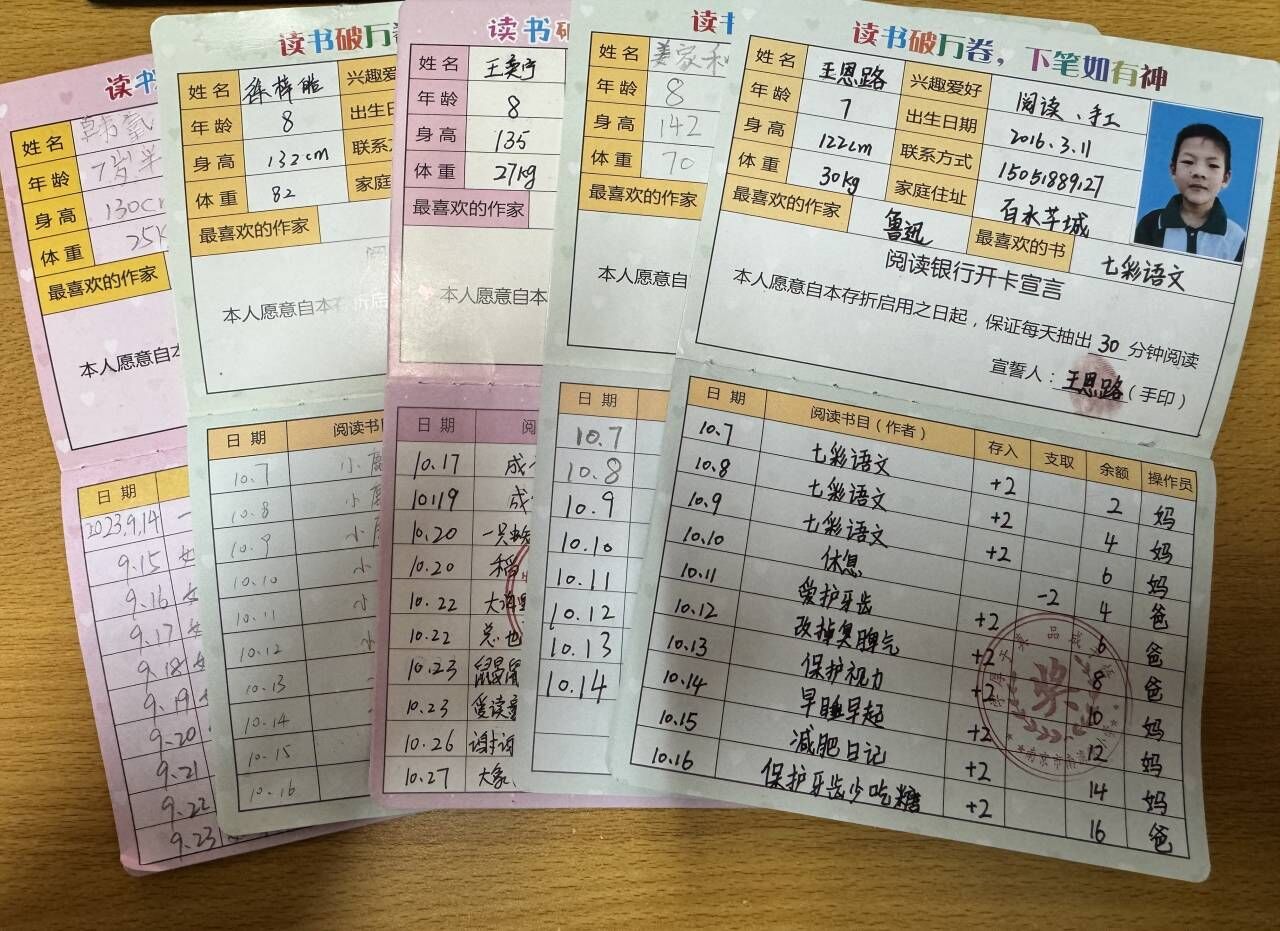 读书
姓名 韩
年龄 7岁半
身高 130c
体重 25k
最喜欢的作家
本人愿意自本
日期
2023.9.14
9.15
9.16
9.17
9.18
9.19
9.20
9.21
9.22
9.23
读书破万卷
姓名 徐梓皓 兴趣爱
年龄 8 出生日
身高 132cm 联系方
体重 82 家庭
最喜欢的作家
本人愿意自本存折启
日期 阅读书目
10.7 小
10.8 小
10.9 小
10.10 小
10.11 小
10.12 小
10.13
10.14
10.15
10.16
读书破
姓名 王奕宁
年龄 8
身高 135
体重 27kg
最喜欢的作家
本人愿意自本
日期 阅
10.17 成
10.19 成
10.20 一只
10.20 稻
10.22 大
10.22 总也
10.23
10.23 爱读
10.26 谢谢
10.27 大象
读书
姓名 姜家和
年龄 8
身高 142
体重 70
最喜欢的作家
本人愿意自本
日期
10.7
10.8
10.9
10.10
10.11
10.12
10.13
10.14
读书破万卷，下笔如有神
姓名 王恩路 兴趣爱好 阅读、手工
年龄 7 出生日期 2016.3.11
身高 122cm 联系方式 15051889127
体重 30kg 家庭住址 百水芊城
最喜欢的作家 鲁迅 最喜欢的书 七彩语文
阅读银行开卡宣言
本人愿意自本存折启用之日起，保证每天抽出 30 分钟阅读
宣誓人：王恩路（手印）
日期 阅读书目（作者） 存入 支取 余额 操作员
10.7 七彩语文 +2 2 妈
10.8 七彩语文 +2 4 妈
10.9 七彩语文 +2 6 妈
10.10 休息 -2 4 爸
10.11 爱护牙齿 +2 6 爸
10.12 改掉臭脾气 +2 8 爸
10.13 保护视力 +2 10 妈
10.14 早睡早起 +2 12 妈
10.15 减肥日记 +2 14 妈
10.16 保护牙齿少吃糖 +2 16 爸
奖